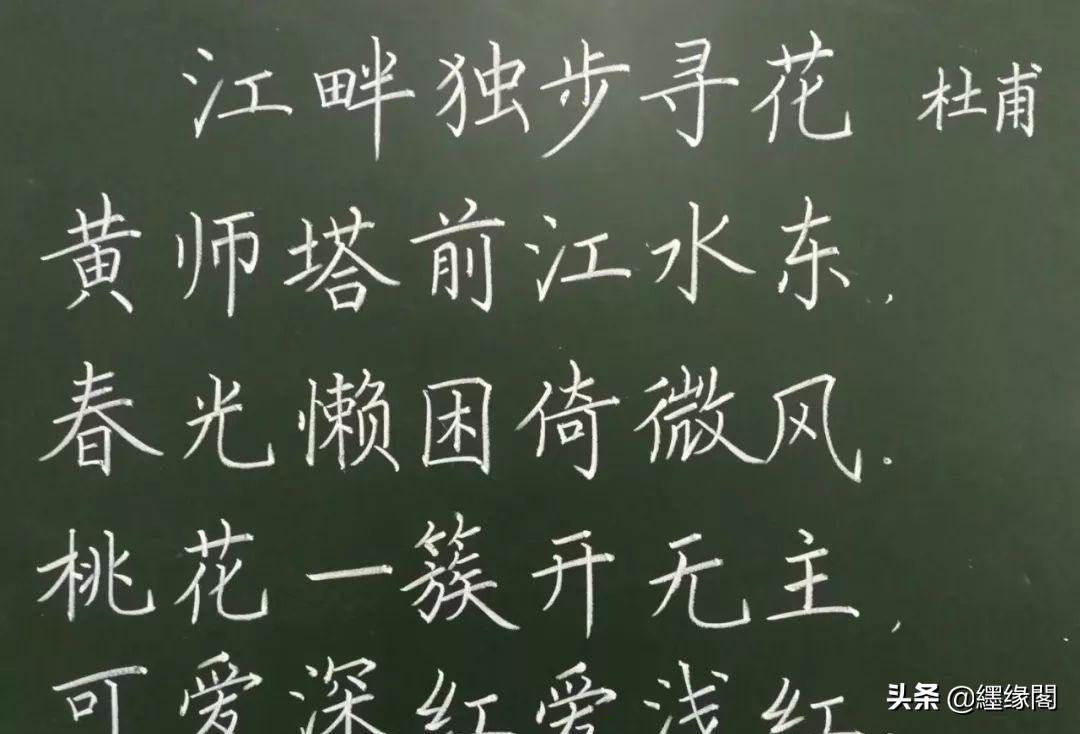 江畔独步寻花 杜甫
黄师塔前江水东,
春光懒困倚微风.
桃花一簇开无主,
可爱深红爱浅红.
头条 @纆缘閣